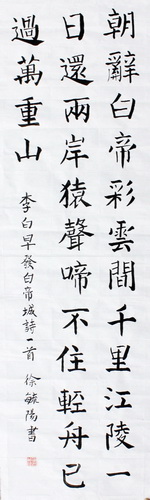 朝辭白帝彩雲間千里江陵一
日還兩岸猿聲啼不住輕舟已
過萬重山
李白早發白帝城詩一首 徐毓陽書